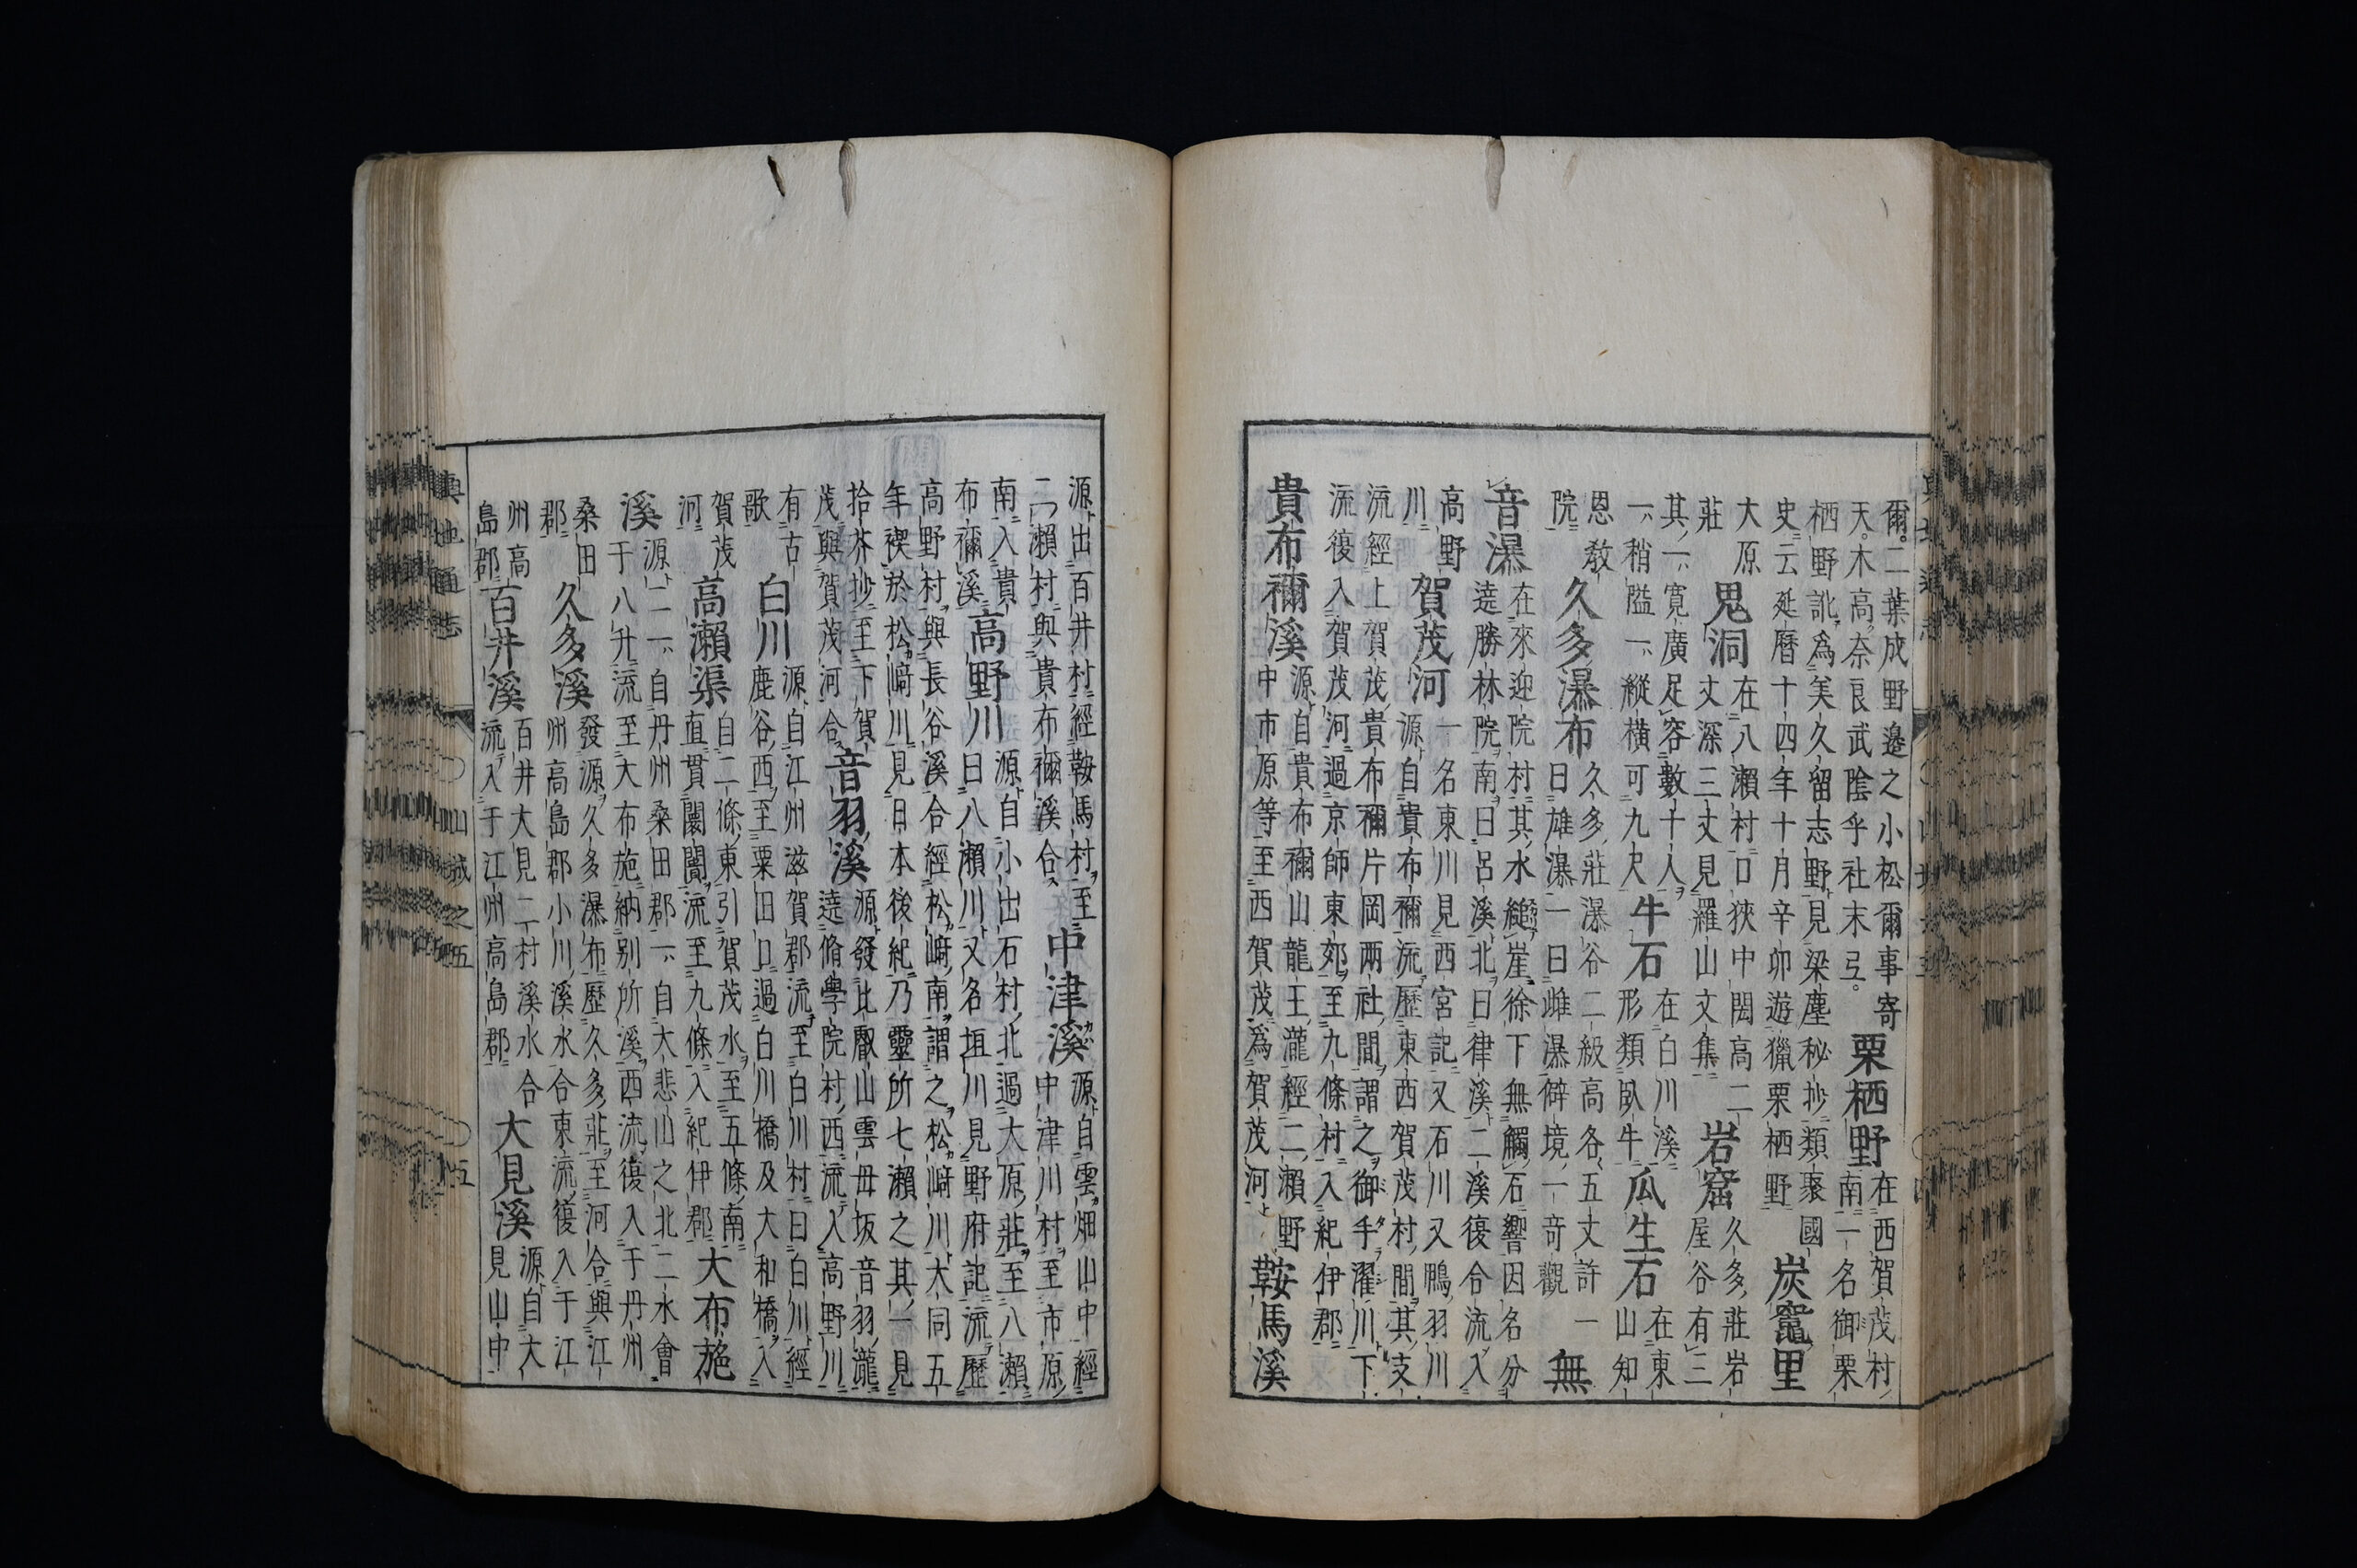 爾。二葉成野邉之小松爾事寄
天。木高奈良武陰乎社末弖。
栗栖野
在西賀茂村
南一名御栗
栖野訛爲美久留志野見梁塵秘抄類聚國
史云延暦十四年十月辛卯遊獵栗栖野
炭竈里
大原
莊
鬼洞
在八瀬村口狹中闊高二
丈深三丈見羅山文集
岩窟
久多莊岩
屋谷有三
其一寛廣足容數十人
一稍隘一縱横可九尺
牛石
在白川溪
形類臥牛
瓜生石
在東
山知
恩敎
院
久多瀑布
久多莊瀑谷二級高各五丈許一
曰雄瀑一曰雌瀑僻境一竒觀
無
音瀑
在來迎院村其水縋崖徐下無觸石響因名分
遶勝林院南曰呂溪北曰律溪二溪復合流入
高野
川
賀茂河
一名東川見西宮記又石川又鴨羽川
源自貴布禰流歷東西賀茂村間其支
流經上賀茂貴布禰片岡兩社間謂之御手濯川下
流復入賀茂河過京師東郊至九條村入紀伊郡
貴布禰溪
源自貴布禰山龍王瀧經二瀬野
中市原等至西賀茂爲賀茂河
鞍馬溪
源出百井村經鞍馬村至
二瀬村與貴布禰溪合
中津溪
源自雲畑山中經
中津川村至市原
南入貴
布禰溪
高野川
源自小出石村北過大原莊至八瀬
曰八瀬川又名垣川見野府記流歷
高野村與長谷溪合經松﨑南謂之松﨑川大同五
年禊於松﨑川見日本後紀乃靈所七瀬之其一見
拾芥抄至下賀
茂與賀茂河合
音羽溪
源發比叡山雲母坂音羽瀧
遶脩學院村西流入高野川
有古
歌
白川
源自江州滋賀郡流至白川村曰白川經
鹿谷西至粟田口過白川橋及大和橋入
賀茂
河
高瀬渠
自二條東引賀茂水至五條南
直貫闤闠流至九條入紀伊郡
大布施
溪
源二一自丹州桑田郡一自大悲山之北二水會
于八升流至大布施納别所溪西流復入于丹州
桑田
郡
久多溪
發源久多瀑布歷久多莊至河合與江
州高島郡小川溪水合東流復入于江
州高
島郡
百井溪
百井大見二村溪水合
流入于江州高島郡
大見溪
源自大
見山中
輿地通志
山城之五
五